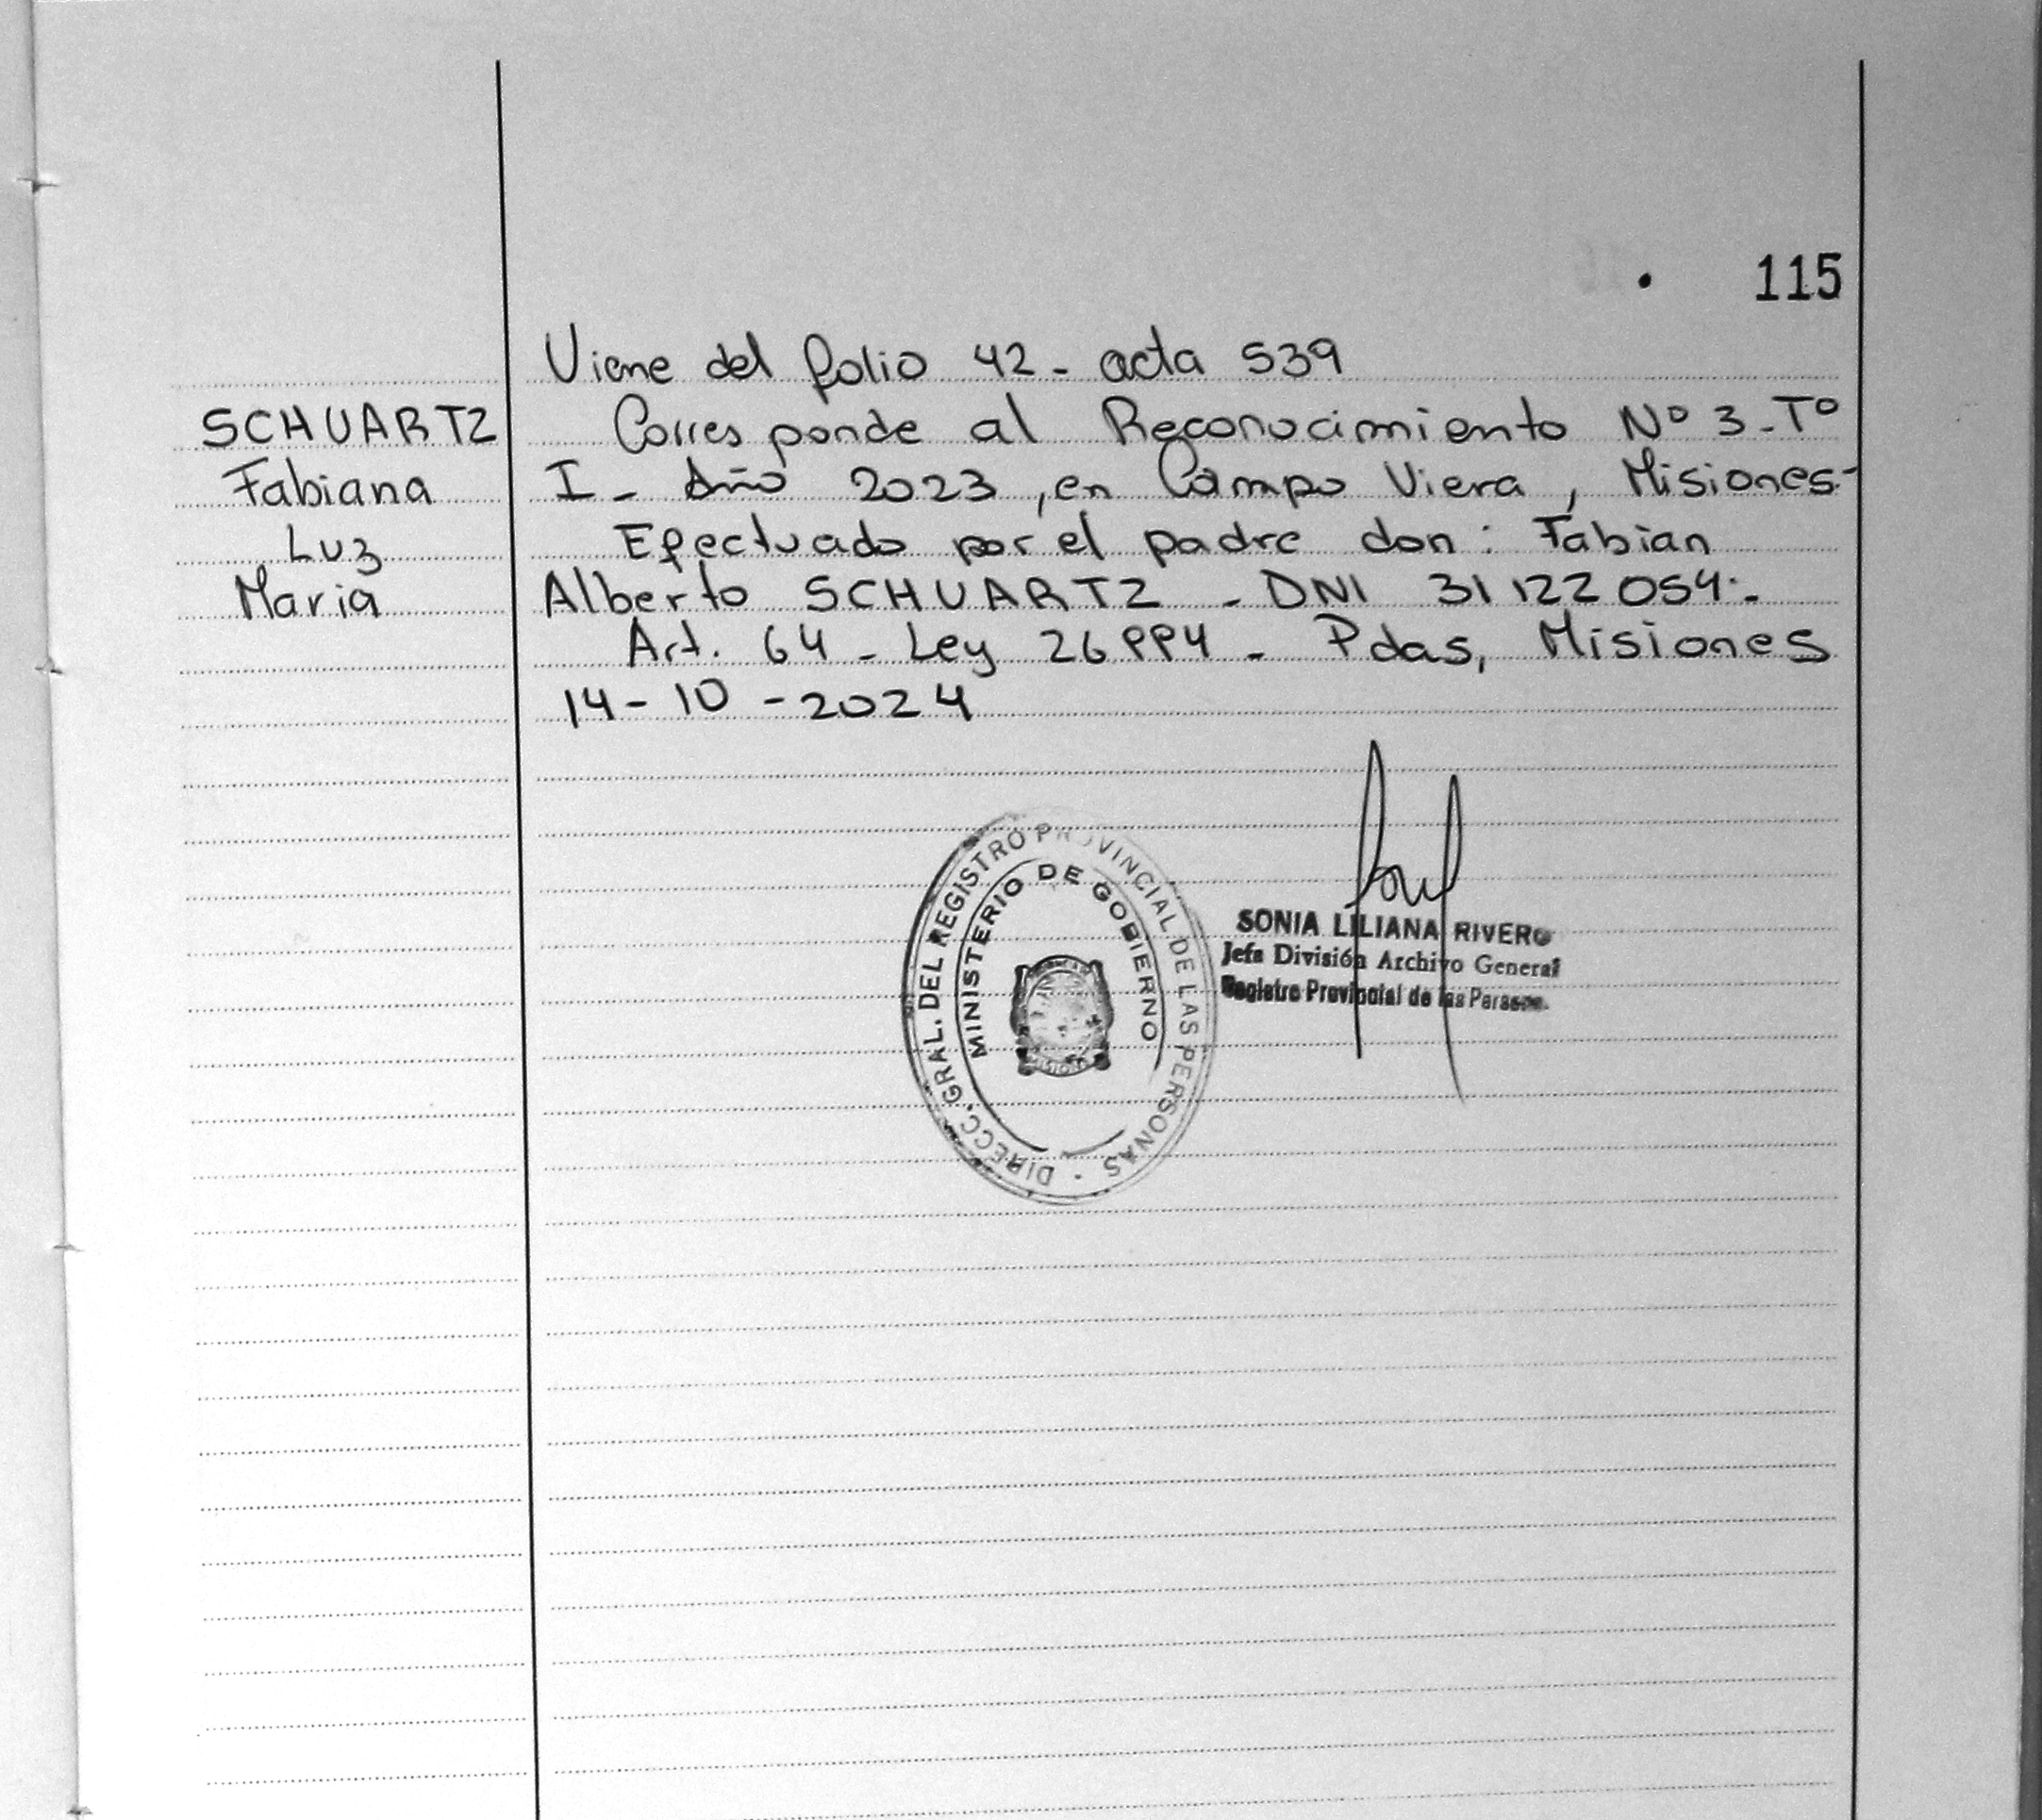 115
Viene del folio 42 - acta 539
SCHUARTZ
Fabiana
Luz
Maria
Corresponde al Reconocimiento Nº 3 - Tº
I - Año 2023, en Campo Viera, Misiones.-
Efectuado por el padre don: Fabian
Alberto SCHUARTZ - DNI 31122054.-
Art. 64 - Ley 26994 - Pdas, Misiones
14-10-2024
DIRECC. GRAL. DEL REGISTRO PROVINCIAL DE LAS PERSONAS
MINISTERIO DE GOBIERNO
SONIA LILIANA RIVERO
Jefa División Archivo General
Registro Provincial de las Personas